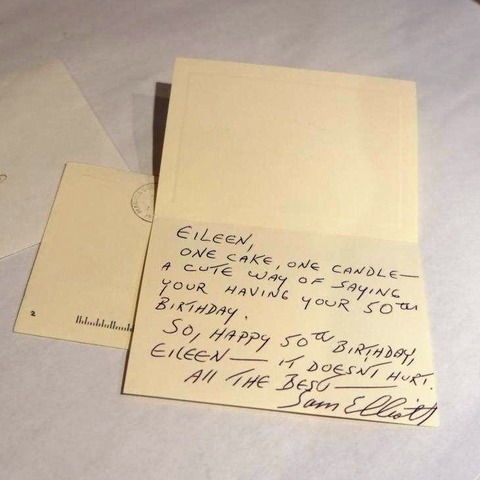 EILEEN,
ONE CAKE, ONE CANDLE—
A CUTE WAY OF SAYING
YOUR HAVING YOUR 50TH
BIRTHDAY.
SO, HAPPY 50TH BIRTHDAY,
EILEEN — IT DOESN'T HURT.
ALL THE BEST —
Sam Elliott
2